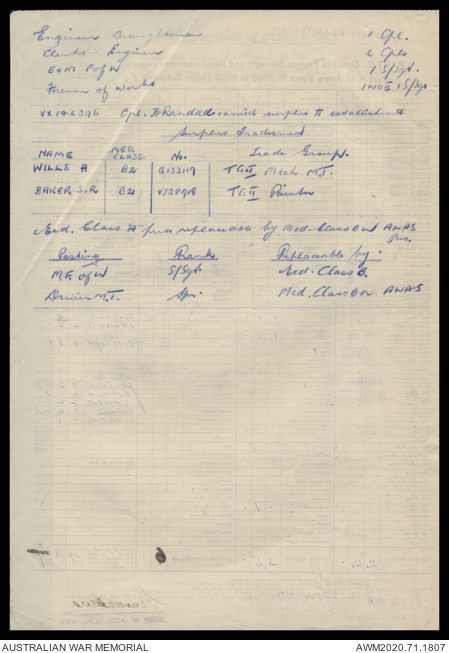 Engineer Draughtsman 1 Cpl.
Clerks Engineer 2 Cpls
E & M F of W 1 S/Sgt.
Foreman of Works 1 WOII 1 S/Sgt
VX142396 Cpl. Randall carried surplus to establishment
Surplus Tradesmen
NAME MED. CLASS. No. Trade Group.
WILLS A B2 Q133117 TGII Mech M.T.
BAKER S.R B2 V328918 TGII Painter
Med. Class 'A' pers replaceable by Med. Class B or AWAS pers.
Posting Rank Replaceable by:
M.F. of W S/Sgt Med. Class B.
Driver M.T. Spr. Med. Class B or AWAS
6
AUSTRALIAN WAR MEMORIAL AWM2020.71.1807